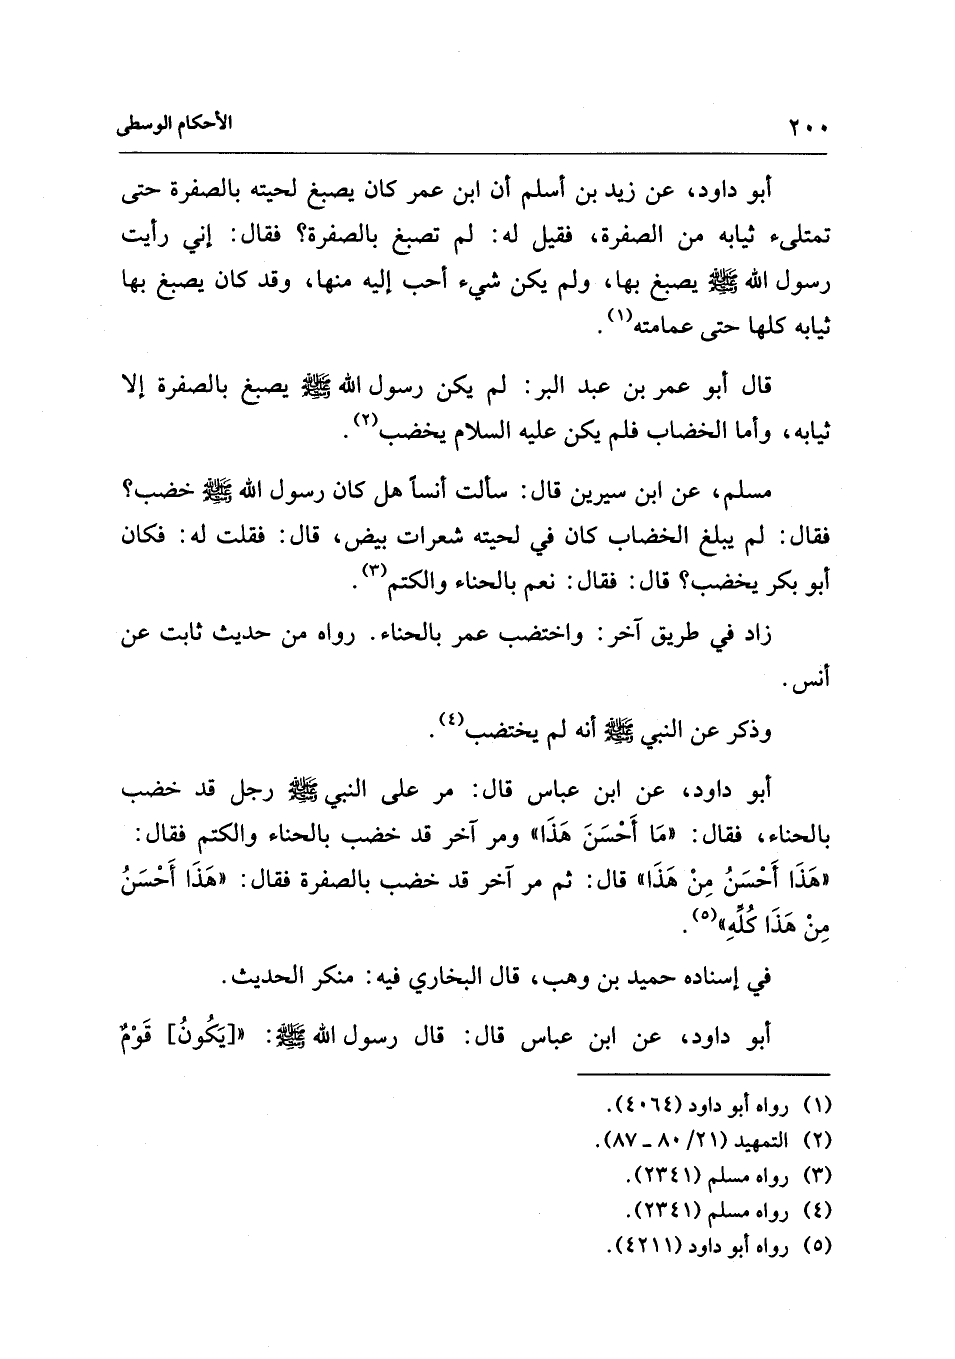 ٢٠٠ الأحكام الوسطى
أبو داود، عن زيد بن أسلم أن ابن عمر كان يصبغ لحيته بالصفرة حتى
تمتلىء ثيابه من الصفرة، فقيل له: لم تصبغ بالصفرة؟ فقال: إني رأيت
رسول الله ﷺ يصبغ بها، ولم يكن شيء أحب إليه منها، وقد كان يصبغ بها
ثيابه كلها حتى عمامته(١).
قال أبو عمر بن عبد البر: لم يكن رسول الله ﷺ يصبغ بالصفرة إلا
ثيابه، وأما الخضاب فلم يكن عليه السلام يخضب(٢).
مسلم، عن ابن سيرين قال: سألت أنساً هل كان رسول الله ﷺ خضب؟
فقال: لم يبلغ الخضاب كان في لحيته شعرات بيض، قال: فقلت له: فكان
أبو بكر يخضب؟ قال: فقال: نعم بالحناء والكتم(٣).
زاد في طريق آخر: واختضب عمر بالحناء. رواه من حديث ثابت عن
أنس.
وذكر عن النبي ﷺ أنه لم يختضب(٤).
أبو داود، عن ابن عباس قال: مر على النبي ﷺ رجل قد خضب
بالحناء، فقال: «مَا أَحْسَنَ هَذَا» ومر آخر قد خضب بالحناء والكتم فقال:
«هَذَا أَحْسَنُ مِنْ هَذَا» قال: ثم مر آخر قد خضب بالصفرة فقال: «هَذَا أَحْسَنُ
مِنْ هَذَا كُلِّهِ»(٥).
في إسناده حميد بن وهب، قال البخاري فيه: منكر الحديث.
أبو داود، عن ابن عباس قال: قال رسول الله ﷺ: «[يَكُونُ] قَوْمٌ
(١) رواه أبو داود (٤٠٦٤).
(٢) التمهيد (٢١/ ٨٠ ـ ٨٧).
(٣) رواه مسلم (٢٣٤١).
(٤) رواه مسلم (٢٣٤١).
(٥) رواه أبو داود (٤٢١١).